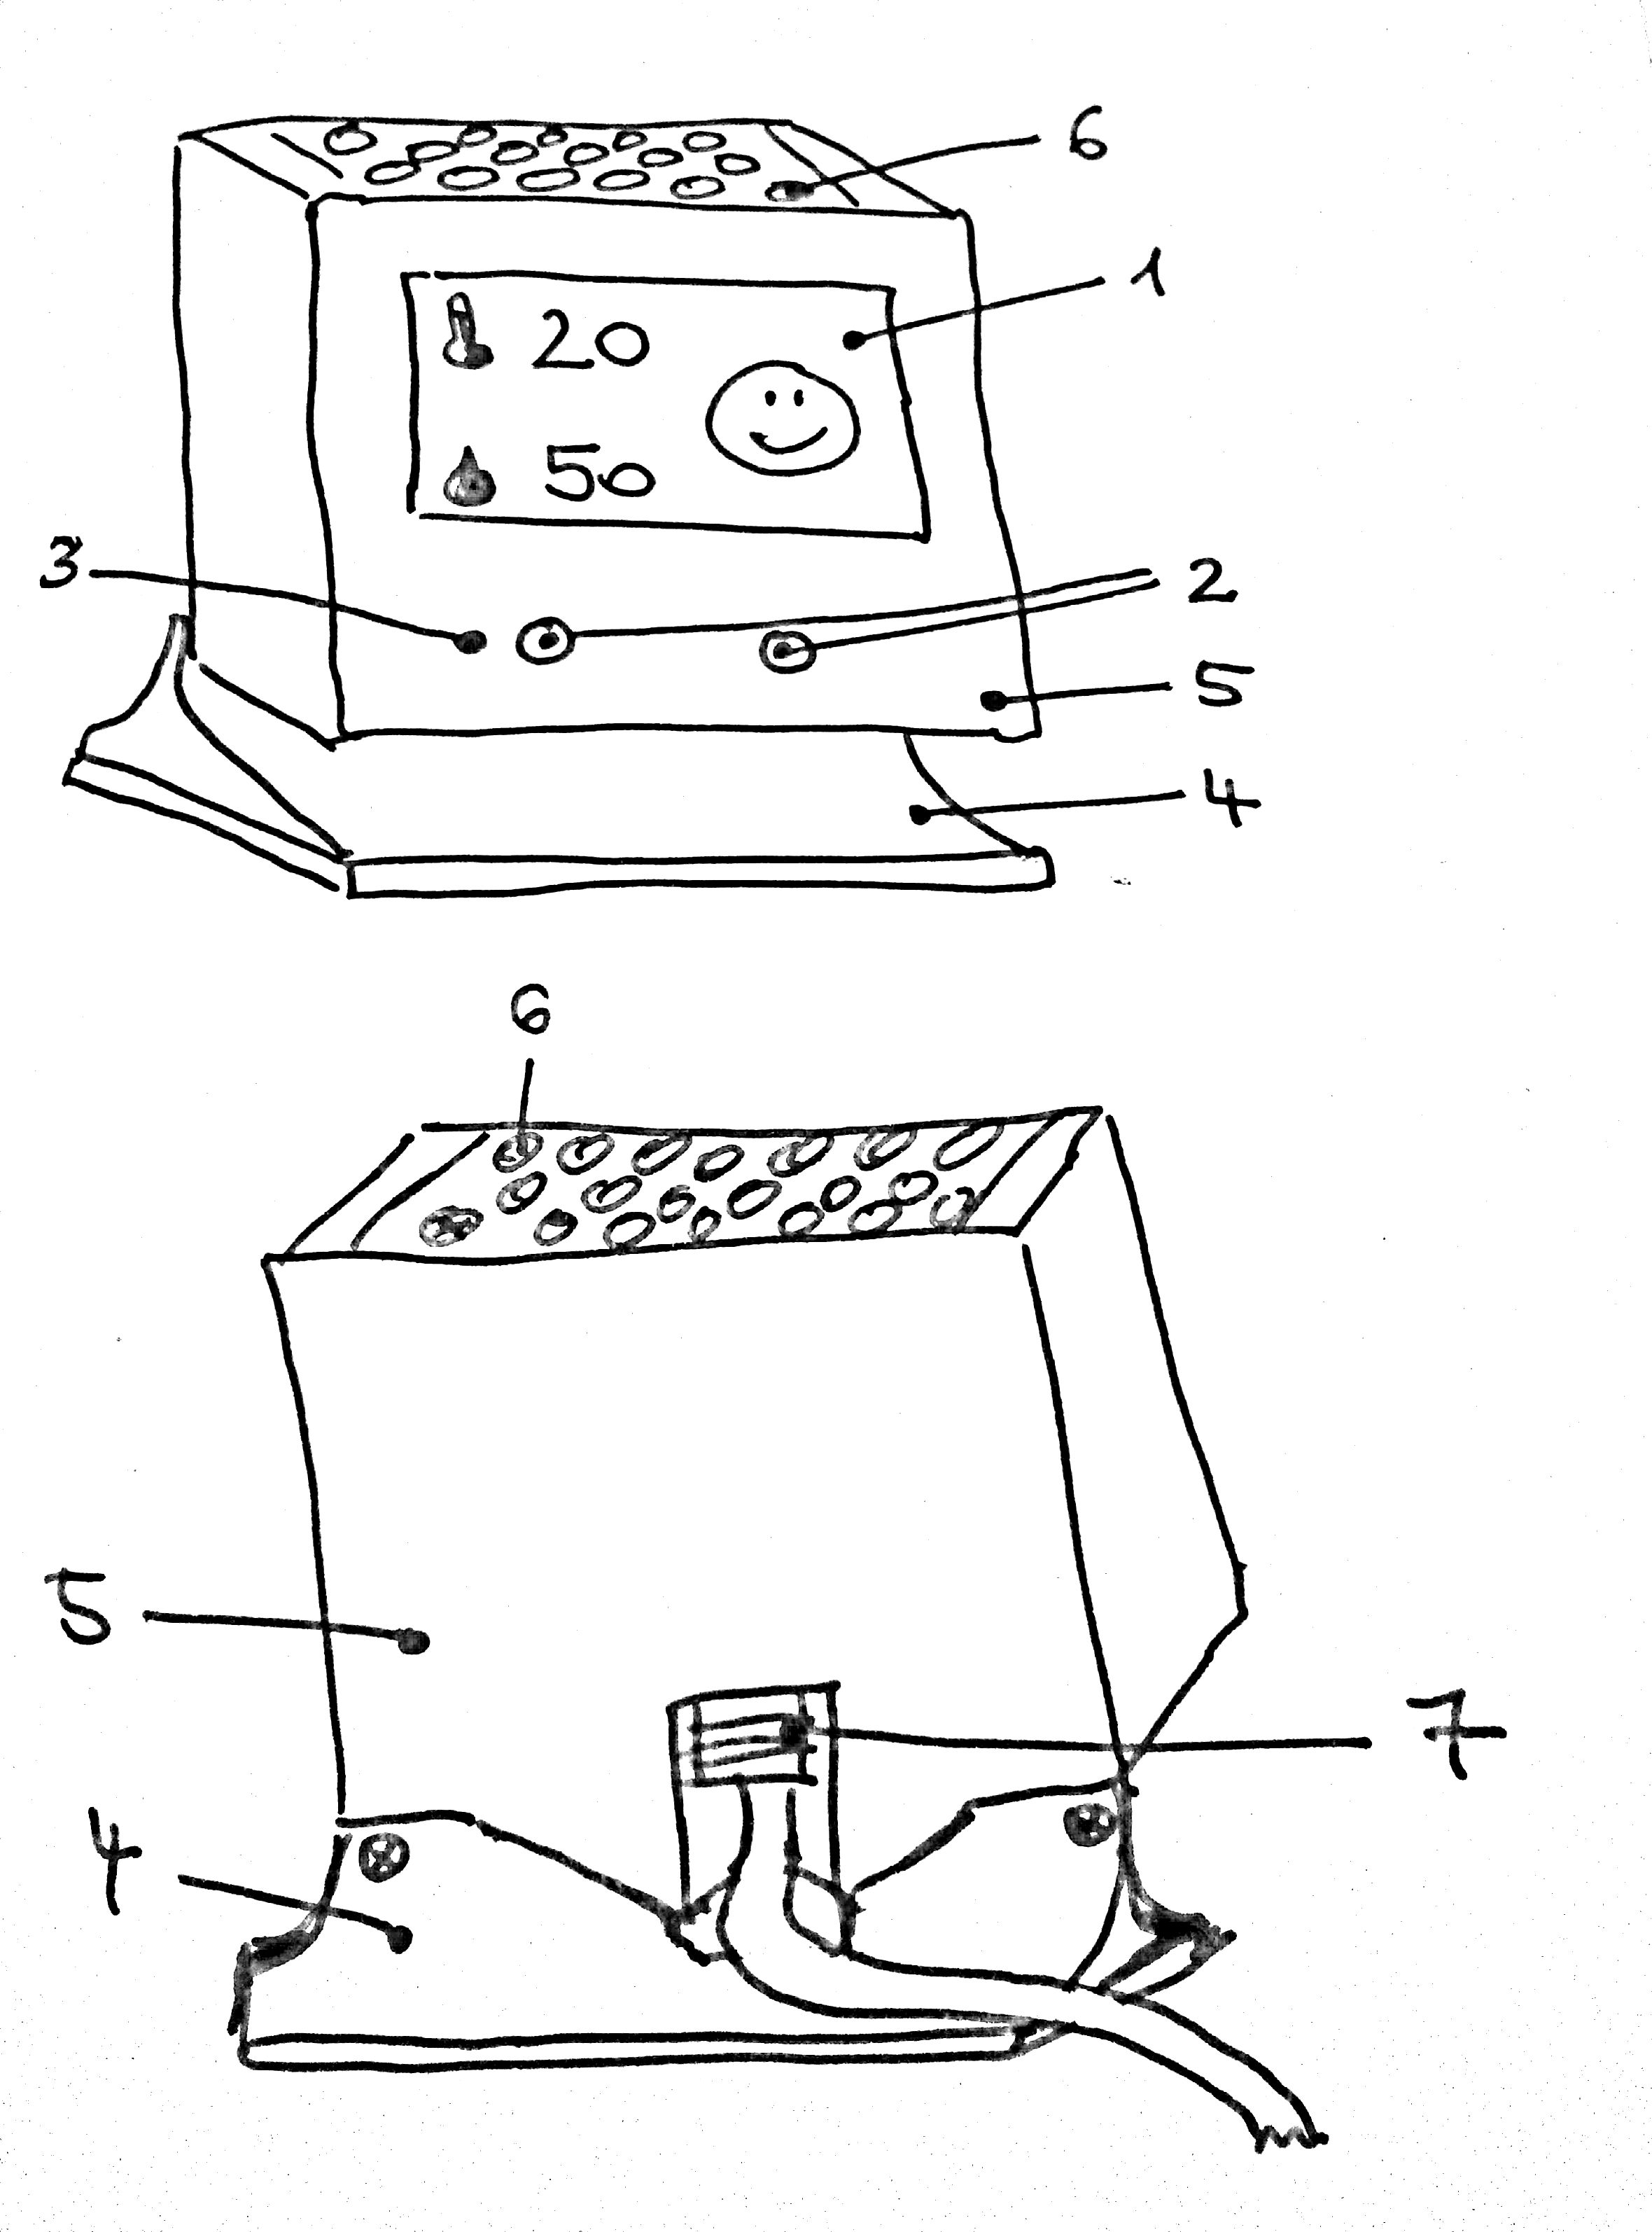 6
1
20
50
3
2
5
4
6
5
7
4